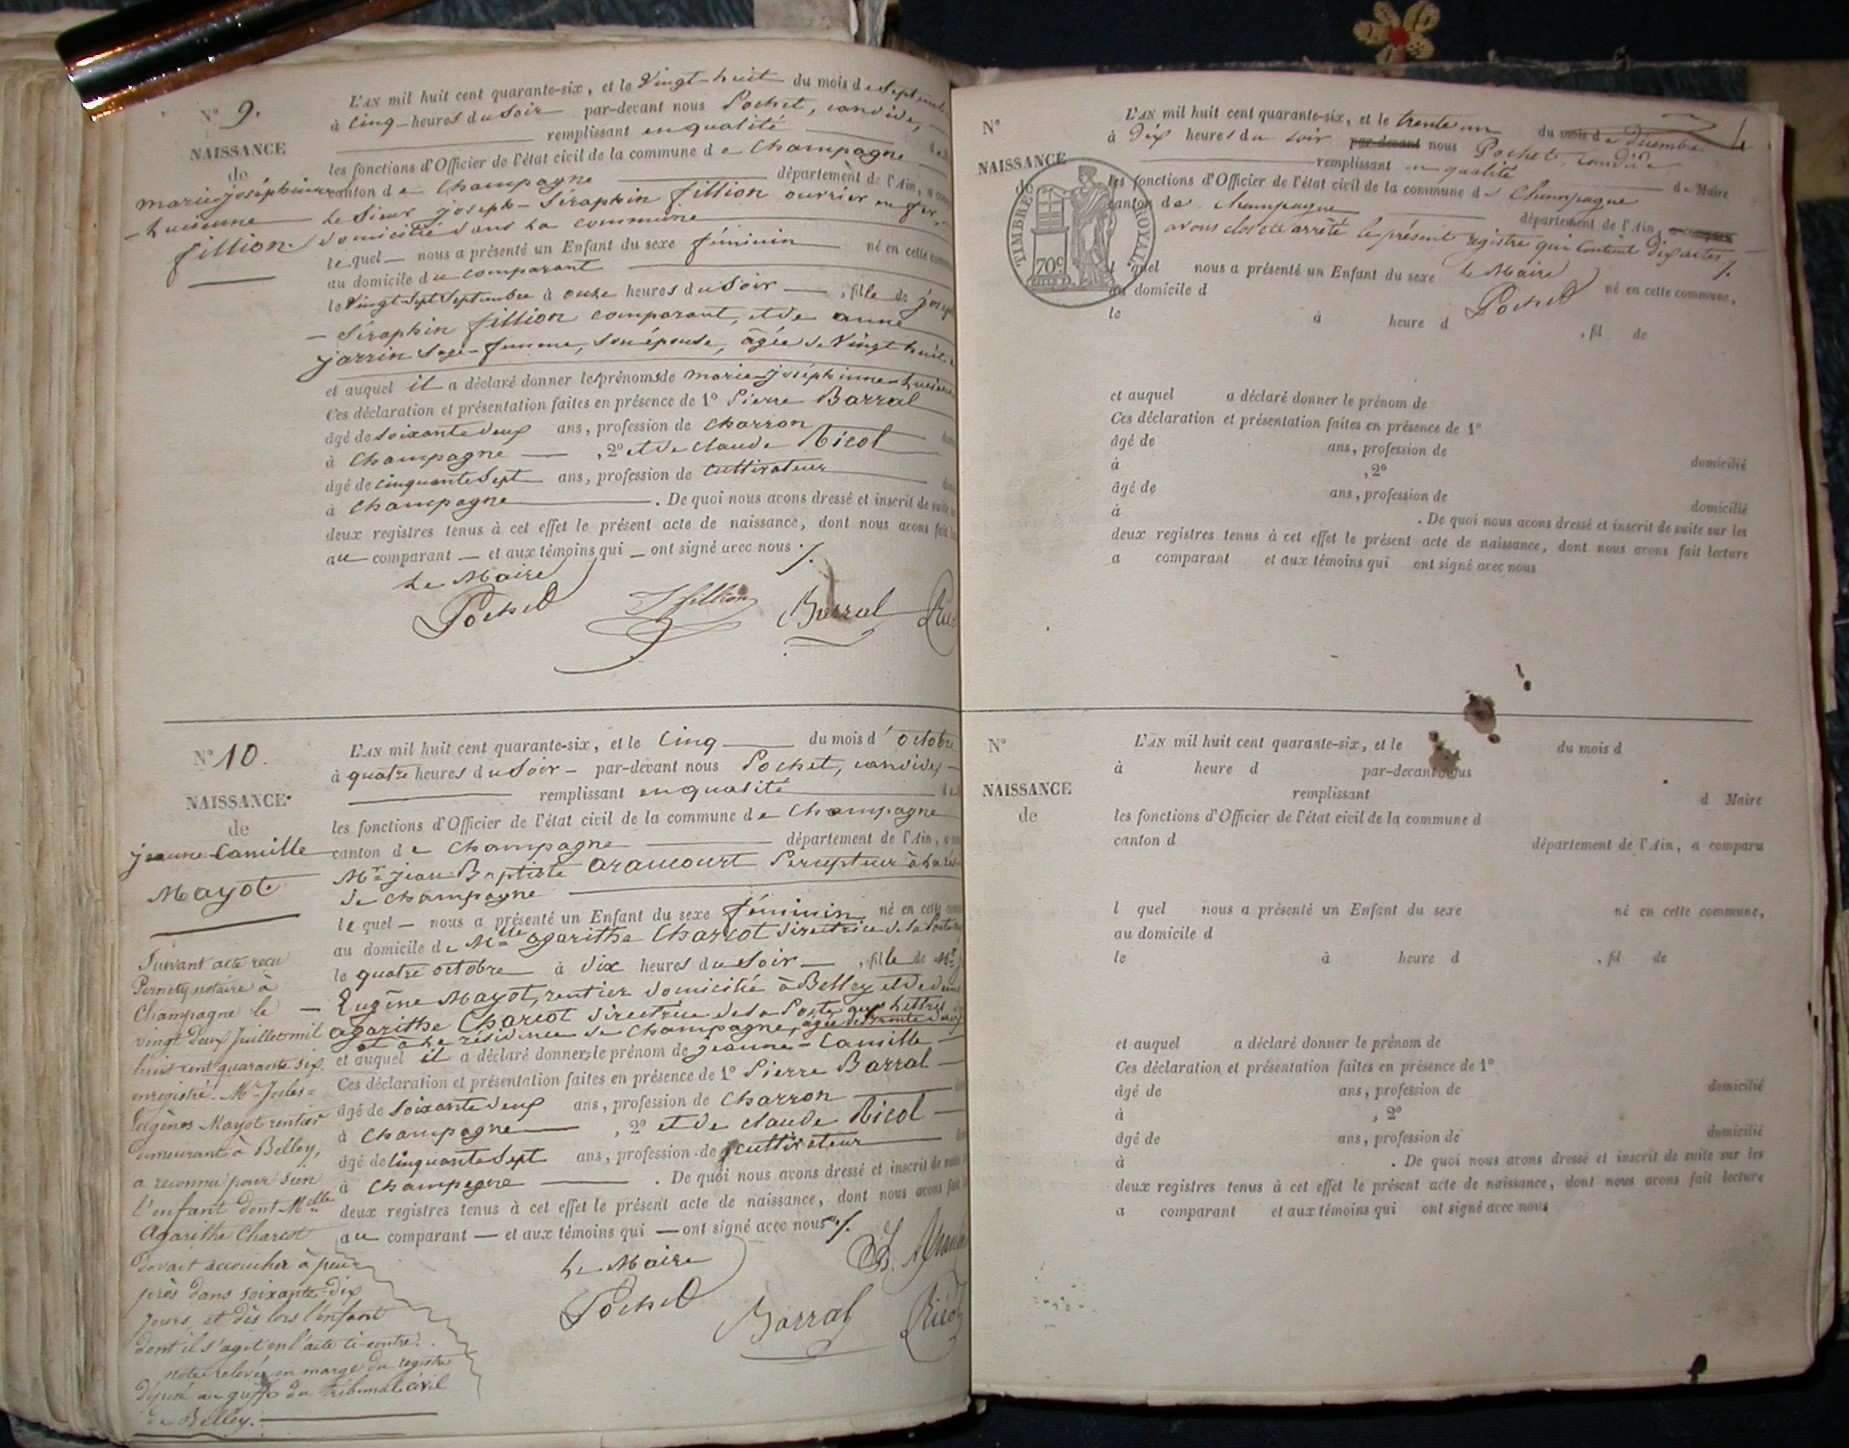 N° 9.
NAISSANCE
de
marie-joséphinne
-Lucienne
fillion.
L'AN mil huit cent quarante-six, et le Vingt-huit du mois de Septembre
à Cinq heures du Soir par-devant nous Pochet, candide,
remplissant en qualité
les fonctions d'Officier de l'état civil de la commune de Champagne
canton de Champagne département de l'Ain, a
le Sieur joseph-Séraphin fillion ouvrier en fer
domicilié dans la commune
lequel nous a présenté un Enfant du sexe féminin né en cette
au domicile du comparant
le Vingt Sept Septembre à onze heures du Soir, fille de
- Séraphin fillion comparant, et de anne
jarrin Sage-femme, son épouse, âgée de Vingt huit
et auquel il a déclaré donner les prénoms de marie-joséphinne-Lucienne
Ces déclaration et présentation faites en présence de 1° Pierre Barral
âgé de Soixante deux ans, profession de Charron
à Champagne, 2° et de claude Ricol
âgé de cinquante Sept ans, profession de Cultivateur
à Champagne. De quoi nous avons dressé et inscrit de suite
deux registres tenus à cet effet le présent acte de naissance, dont nous avons fait
au comparant et aux témoins qui ont signé avec nous ./.
Le Maire
Pochet fillion Barral
N° 10.
NAISSANCE
de
jeanne-Camille
Mayot
L'AN mil huit cent quarante-six, et le Cinq du mois d'octobre
à quatre heures du Soir par-devant nous Pochet, candide,
remplissant en qualité
les fonctions d'Officier de l'état civil de la commune de Champagne
canton de Champagne département de l'Ain,
Mr jean Baptiste arancourt Percepteur à la
de Champagne
lequel nous a présenté un Enfant du sexe féminin né en cette
au domicile de Melle agarithe Charcot directrice de la Poste
le quatre octobre à dix heures du Soir, fille de Mr
- Eugène Mayot, rentier domicilié à Belley et de
agarithe Charcot directrice de la Poste aux Lettres
et à la résidence de Champagne, âgée de
et auquel il a déclaré donner le prénom de jeanne-Camille
Ces déclaration et présentation faites en présence de 1° Pierre Barral
âgé de Soixante deux ans, profession de Charron
à Champagne, 2° et de claude Ricol
âgé de Cinquante Sept ans, profession de cultivateur
à Champagne. De quoi nous avons dressé et inscrit de suite
deux registres tenus à cet effet le présent acte de naissance, dont nous avons fait
au comparant et aux témoins qui ont signé avec nous ./.
Le Maire
Pochet Barral
Suivant acte reçu
Pernety notaire à
Champagne le
vingt deux Juillet mil
huit cent quarante six
enregistré. Mr Jules-
Eugènes Mayot rentier
demeurant à Belley,
a reconnu pour sien
l'enfant dont Melle
Agarithe Charcot
devait accoucher à peu
près dans soixante-dix
jours, et dès lors l'enfant
dont il s'agit en l'acte ci-contre.
note relevée en marge du registre
déposé au greffe du Tribunal civil
de Belley.
N°
NAISSANCE
de
TIMBRE ROYAL
70c
L'AN mil huit cent quarante-six, et le trente un du mois de décembre
à dix heures du soir par-devant nous Pochet, candide
remplissant en qualité
les fonctions d'Officier de l'état civil de la commune de Champagne de Maire
canton de Champagne département de l'Ain,
avons clos et arrêté le présent registre qui contient dix actes ./.
l quel nous a présenté un Enfant du sexe le Maire né en cette commune,
au domicile d Pochet
le à heure d , fil de
et auquel a déclaré donner le prénom de
Ces déclaration et présentation faites en présence de 1°
âgé de ans, profession de
à , 2° domicilié
âgé de ans, profession de
à . De quoi nous avons dressé et inscrit de suite sur les domicilié
deux registres tenus à cet effet le présent acte de naissance, dont nous avons fait lecture
a comparant et aux témoins qui ont signé avec nous
N°
NAISSANCE
de
L'AN mil huit cent quarante-six, et le du mois d
à heure d par-devant nous
remplissant d Maire
les fonctions d'Officier de l'état civil de la commune d
canton d département de l'Ain, a comparu
l quel nous a présenté un Enfant du sexe né en cette commune,
au domicile d
le à heure d , fil de
et auquel a déclaré donner le prénom de
Ces déclaration et présentation faites en présence de 1°
âgé de ans, profession de domicilié
à , 2°
âgé de ans, profession de domicilié
à . De quoi nous avons dressé et inscrit de suite sur les
deux registres tenus à cet effet le présent acte de naissance, dont nous avons fait lecture
a comparant et aux témoins qui ont signé avec nous